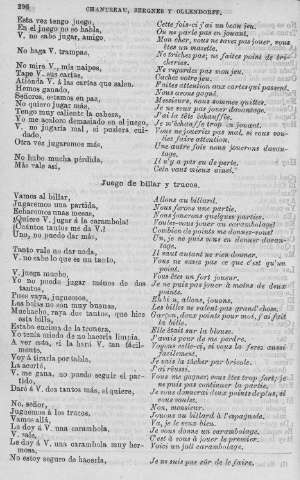 396 CHANTREAU, BERGNES Y OLLENDORFF.
Esta vez tengo juego. Cette fois-ci j'ai un beau jeu.
En el juego no se habla, On ne parle pas en jouant.
V. no sabe jugar, amigo. Mon cher, vous ne savez pas jouer, vous êtes un mazette.
No haga V. trampas. Ne trichez pas; ne faites point de tricheries.
No mire V. mis naipes. Ne regardez pas mon jeu.
Tape V. sus cartas. Cachez votre jeu.
Atienda V. á las cartas que salen. Faites attention aux cartes qui passent.
Hemos ganado. Nous avons gagné.
Señores, estamos en paz. Messieurs, nous sommes quittes.
No quiero jugar más. Je ne veux pas jouer davantage.
Tengo muy caliente la cabeza. J'ai la tête échauffée.
Yo me acaloro demasiado en el juego. Je m'échauffe trop en jouant.
V. no jugaría mal, si pusiera cuidado. Vous ne joueriez pas mal, si vous vouliez faire attention.
Otra vez jugaremos más. Une autre fois nous jouerons davantage.
No hubo mucha pérdida. Il n'y a pas eu de perte.
Más vale así. Cela vaut mieux ainsi.
Juego de billar y trucos.
Vamos al billar. Allons au billard.
Jugaremos una partida. Nous ferons une partie.
Echaremos unas mesas. Nous jouerons quelques parties.
¿Quiere V. jugar á la carambola? Voulez-vous jouer au carambolage?
¿Cuántos tantos me da V.? Combien de points me donnez-vous?
Uno, no puedo dar más. Un, je ne puis vous en donner davantage.
Tanto vale no dar nada. Il vaut autant ne rien donner.
V. no sabe lo que es un tanto. Vous ne savez pas ce que c'est qu'un point.
V. juega mucho. Vous êtes un fort joueur.
Yo no puedo jugar ménos de dos tantos. Je ne puis pas jouer à moins de deux points.
Pues vaya, juguemos. Eh bien, allons, jouons.
Las bolas no son muy buenas. Les billes ne valent pas grand'chose.
Muchacho, raya dos tantos, que hice esta billa. Garçon, deux points pour moi, j'ai fait la bille.
Estaba encima de la tronera. Elle était sur la blouse.
Yo tenía miedo de no hacerla limpia. J'avais peur de me perdre.
A ver esta, si la hará V. tan fácilmente. Voyons celle-ci, si vous la ferez aussi facilement.
Voy á tirarla por tabla. Je vais la tâcher par bricole.
La acerté. J'ai réussi.
V. me gana, no puedo seguir el partido. Vous me gagnez; vous êtes trop fort; je ne puis pas continuer la partie.
Daré á V. dos tantos más, si quiere. Je vous donnerai deux points de plus, si vous voulez.
No, señor. Non, monsieur.
Juguemos á los trucos. Jouons au billard à l'espagnole.
Vamos allá. Va, je le veux bien.
Le doy á V. una carambola. Je vous donne un carambolage.
V. sale. C'est à vous à jouer le premier.
Le doy á V. una carambola muy hermosa. Voici un joli carambolage.
No estoy seguro de hacerla. Je ne suis pas sûr de le faire.